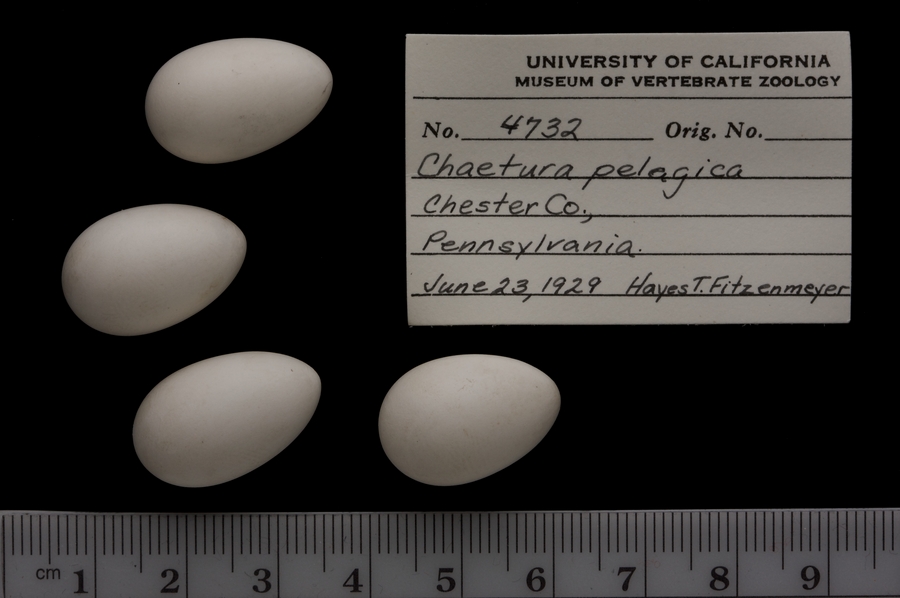 UNIVERSITY OF CALIFORNIA
MUSEUM OF VERTEBRATE ZOOLOGY
No. 4732 Orig. No.
Chaetura pelagica
Chester Co.,
Pennsylvania.
June 23, 1929 Hayes T. Fitzenmeyer
cm 1 2 3 4 5 6 7 8 9